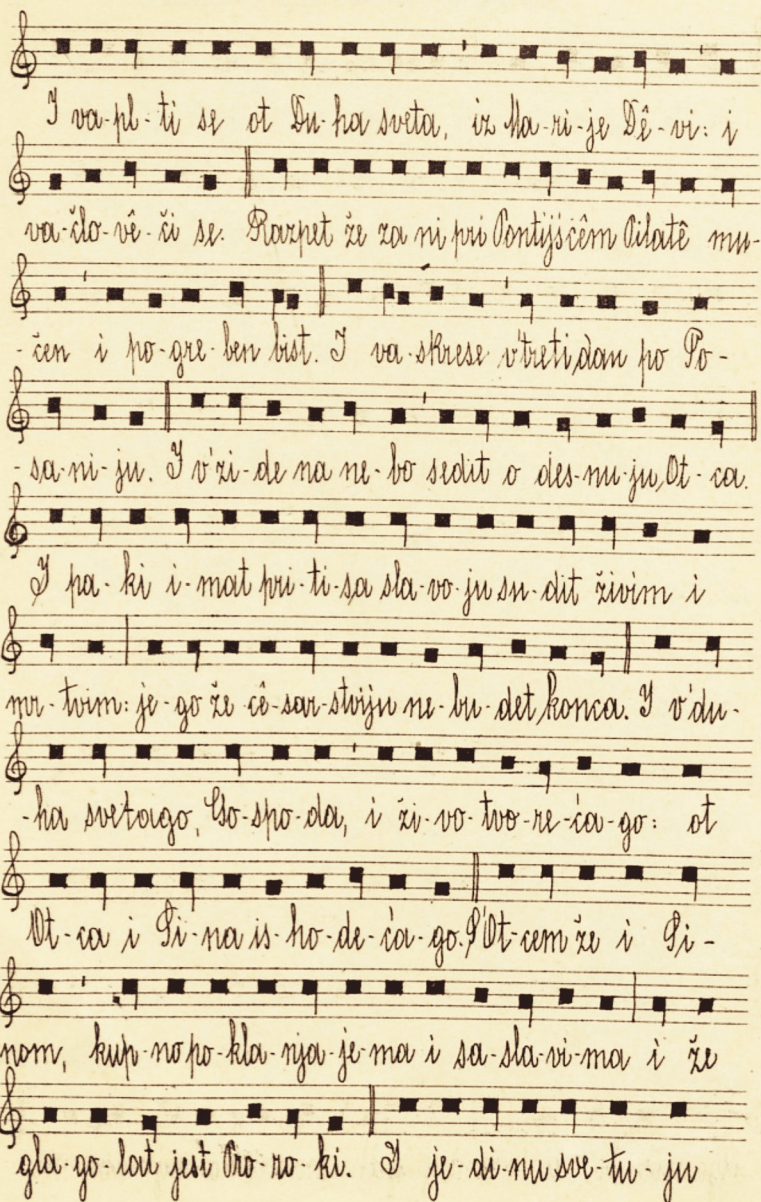 I va-pl-ti se ot Du-ha sveta, iz Ma-ri-je Dê-vi: i
va-člo-vê-či se. Razpet že za ni pri Pontijsćêm Pilatê mu-
-čen i po-gre-ben bist. I va-skrese v'treti dan po Po-
-sa-ni-ju. I v'zi-de na ne-bo sedit o des-nu-ju Ot-ca.
I pa-ki i-mat pri-ti-sa sla-vo-ju su-dit živim i
mr-tvim: je-go že cê-sar-stviju ne-bu-det konca. I v'du-
-ha svetago, Go-spo-da, i ži-vo-tvo-re-ća-go: ot
Ot-ca i Si-na is-ho-de-ća-go. S'Ot-cem že i Si-
nom, kup-no po-kla-nja-je-ma i sa-sla-vi-ma i že
gla-go-lat jest Pro-ro-ki. I je-di-nu sve-tu-ju